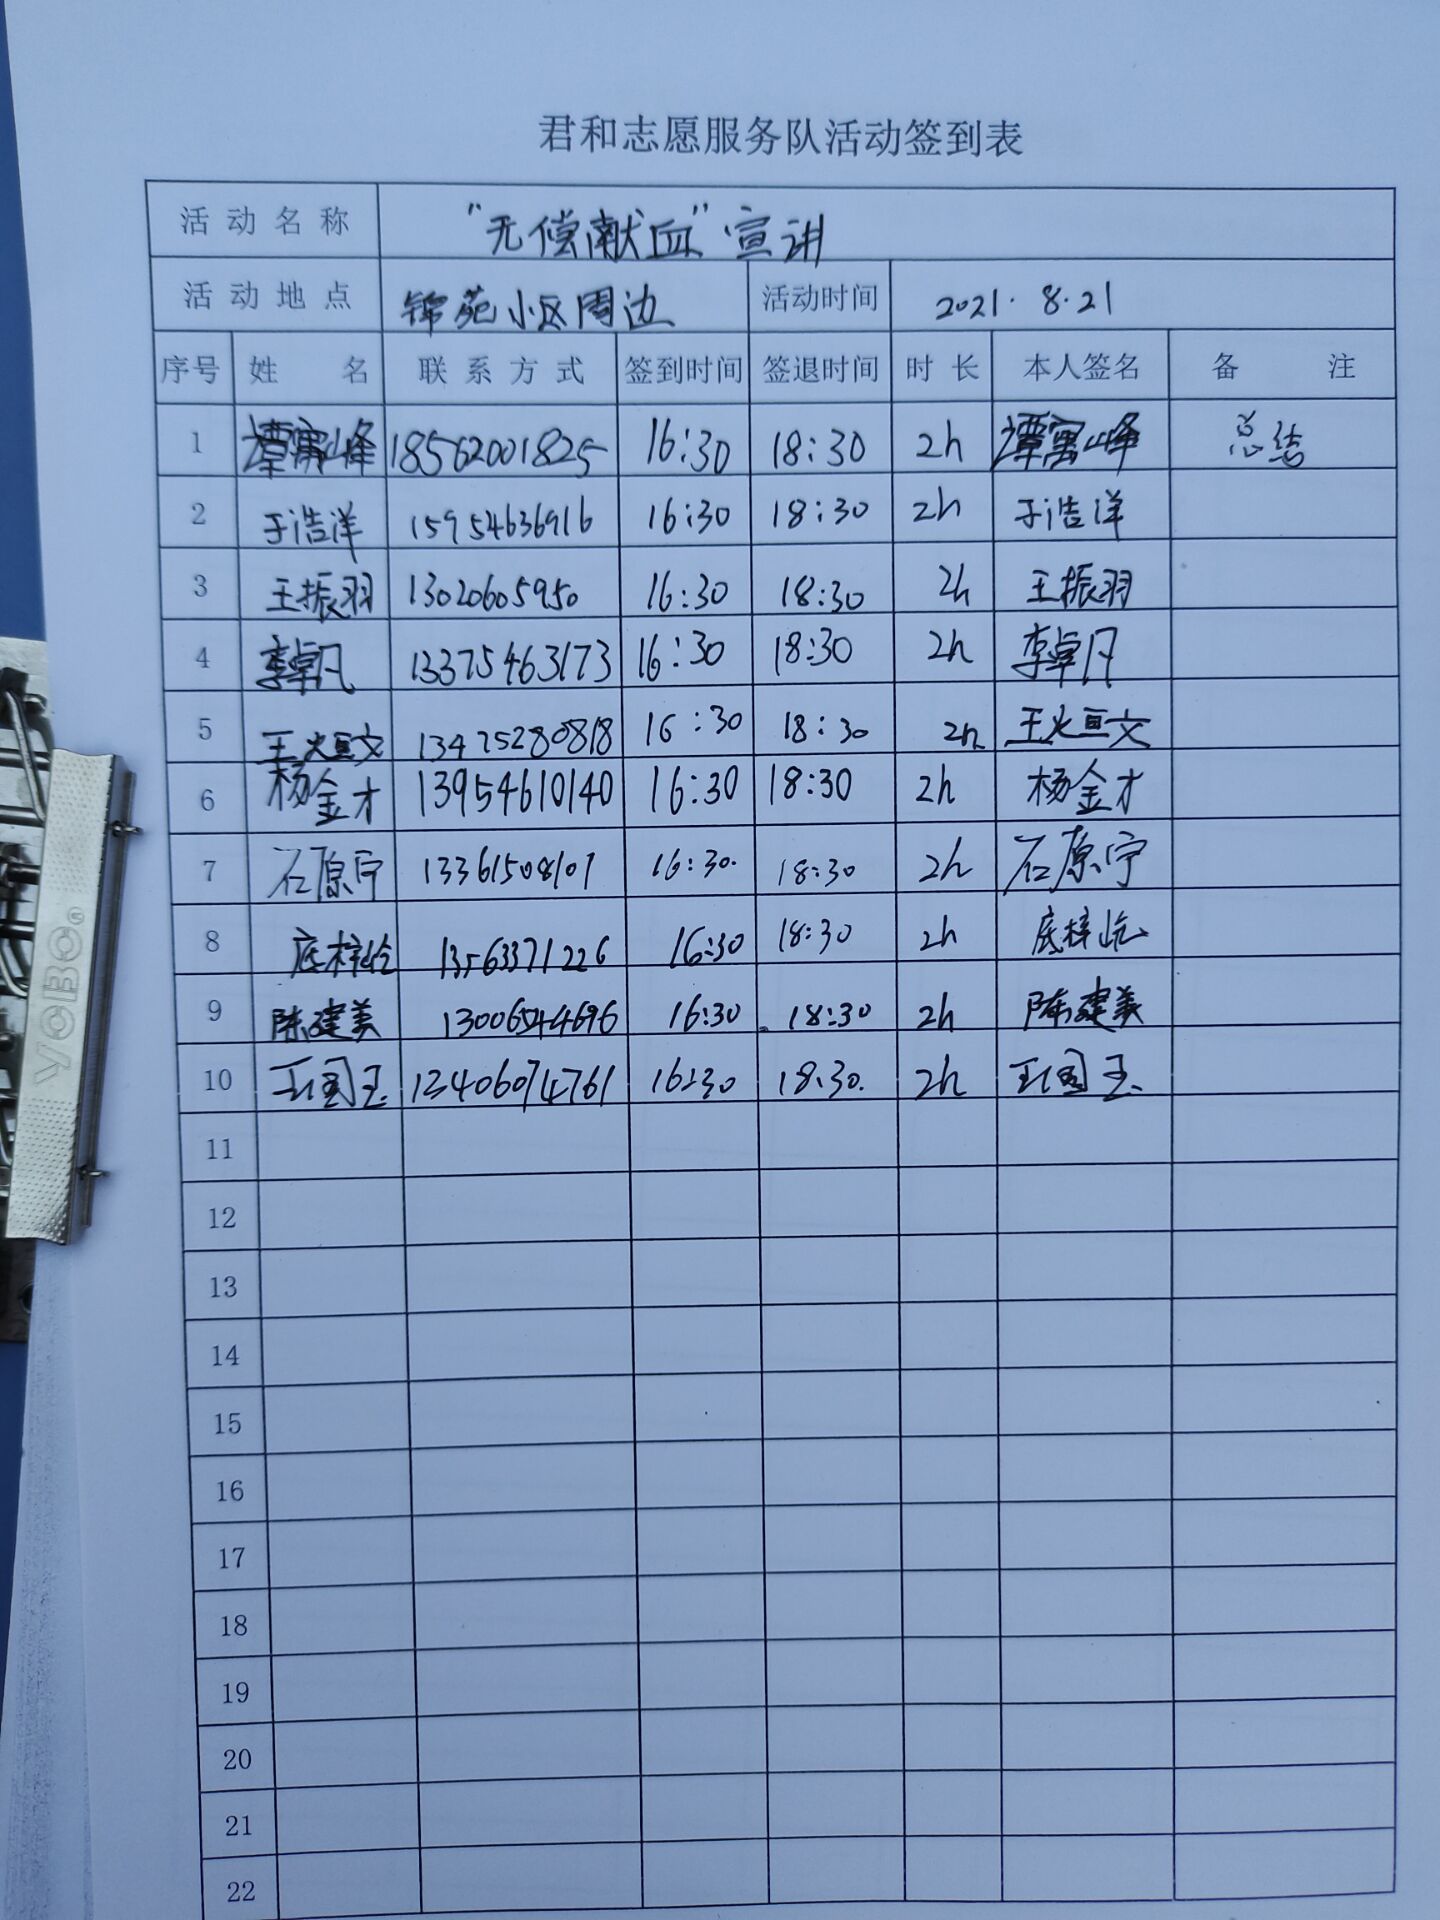 君和志愿服务队活动签到表
活动名称 “无偿献血”宣讲
活动地点 锦苑小区周边 活动时间 2021.8.21
序号 姓名 联系方式 签到时间 签退时间 时长 本人签名 备注
1 谭寓峰 18562001825 16:30 18:30 2h 谭寓峰 总结
2 于浩洋 15954636916 16:30 18:30 2h 于浩洋
3 王振羽 13020605950 16:30 18:30 2h 王振羽
4 李卓凡 13375463173 16:30 18:30 2h 李卓凡
5 王烜文 13475280818 16:30 18:30 2h 王烜文
6 杨金才 13954610140 16:30 18:30 2h 杨金才
7 石原宁 13361508101 16:30. 18:30 2h 石原宁
8 16:30 18:30 2h
9 陈建美 16:30 18:30 2h 陈建美
10 16:30 18:30. 2h
11
12
13
14
15
16
17
18
19
20
21
22
YOBO